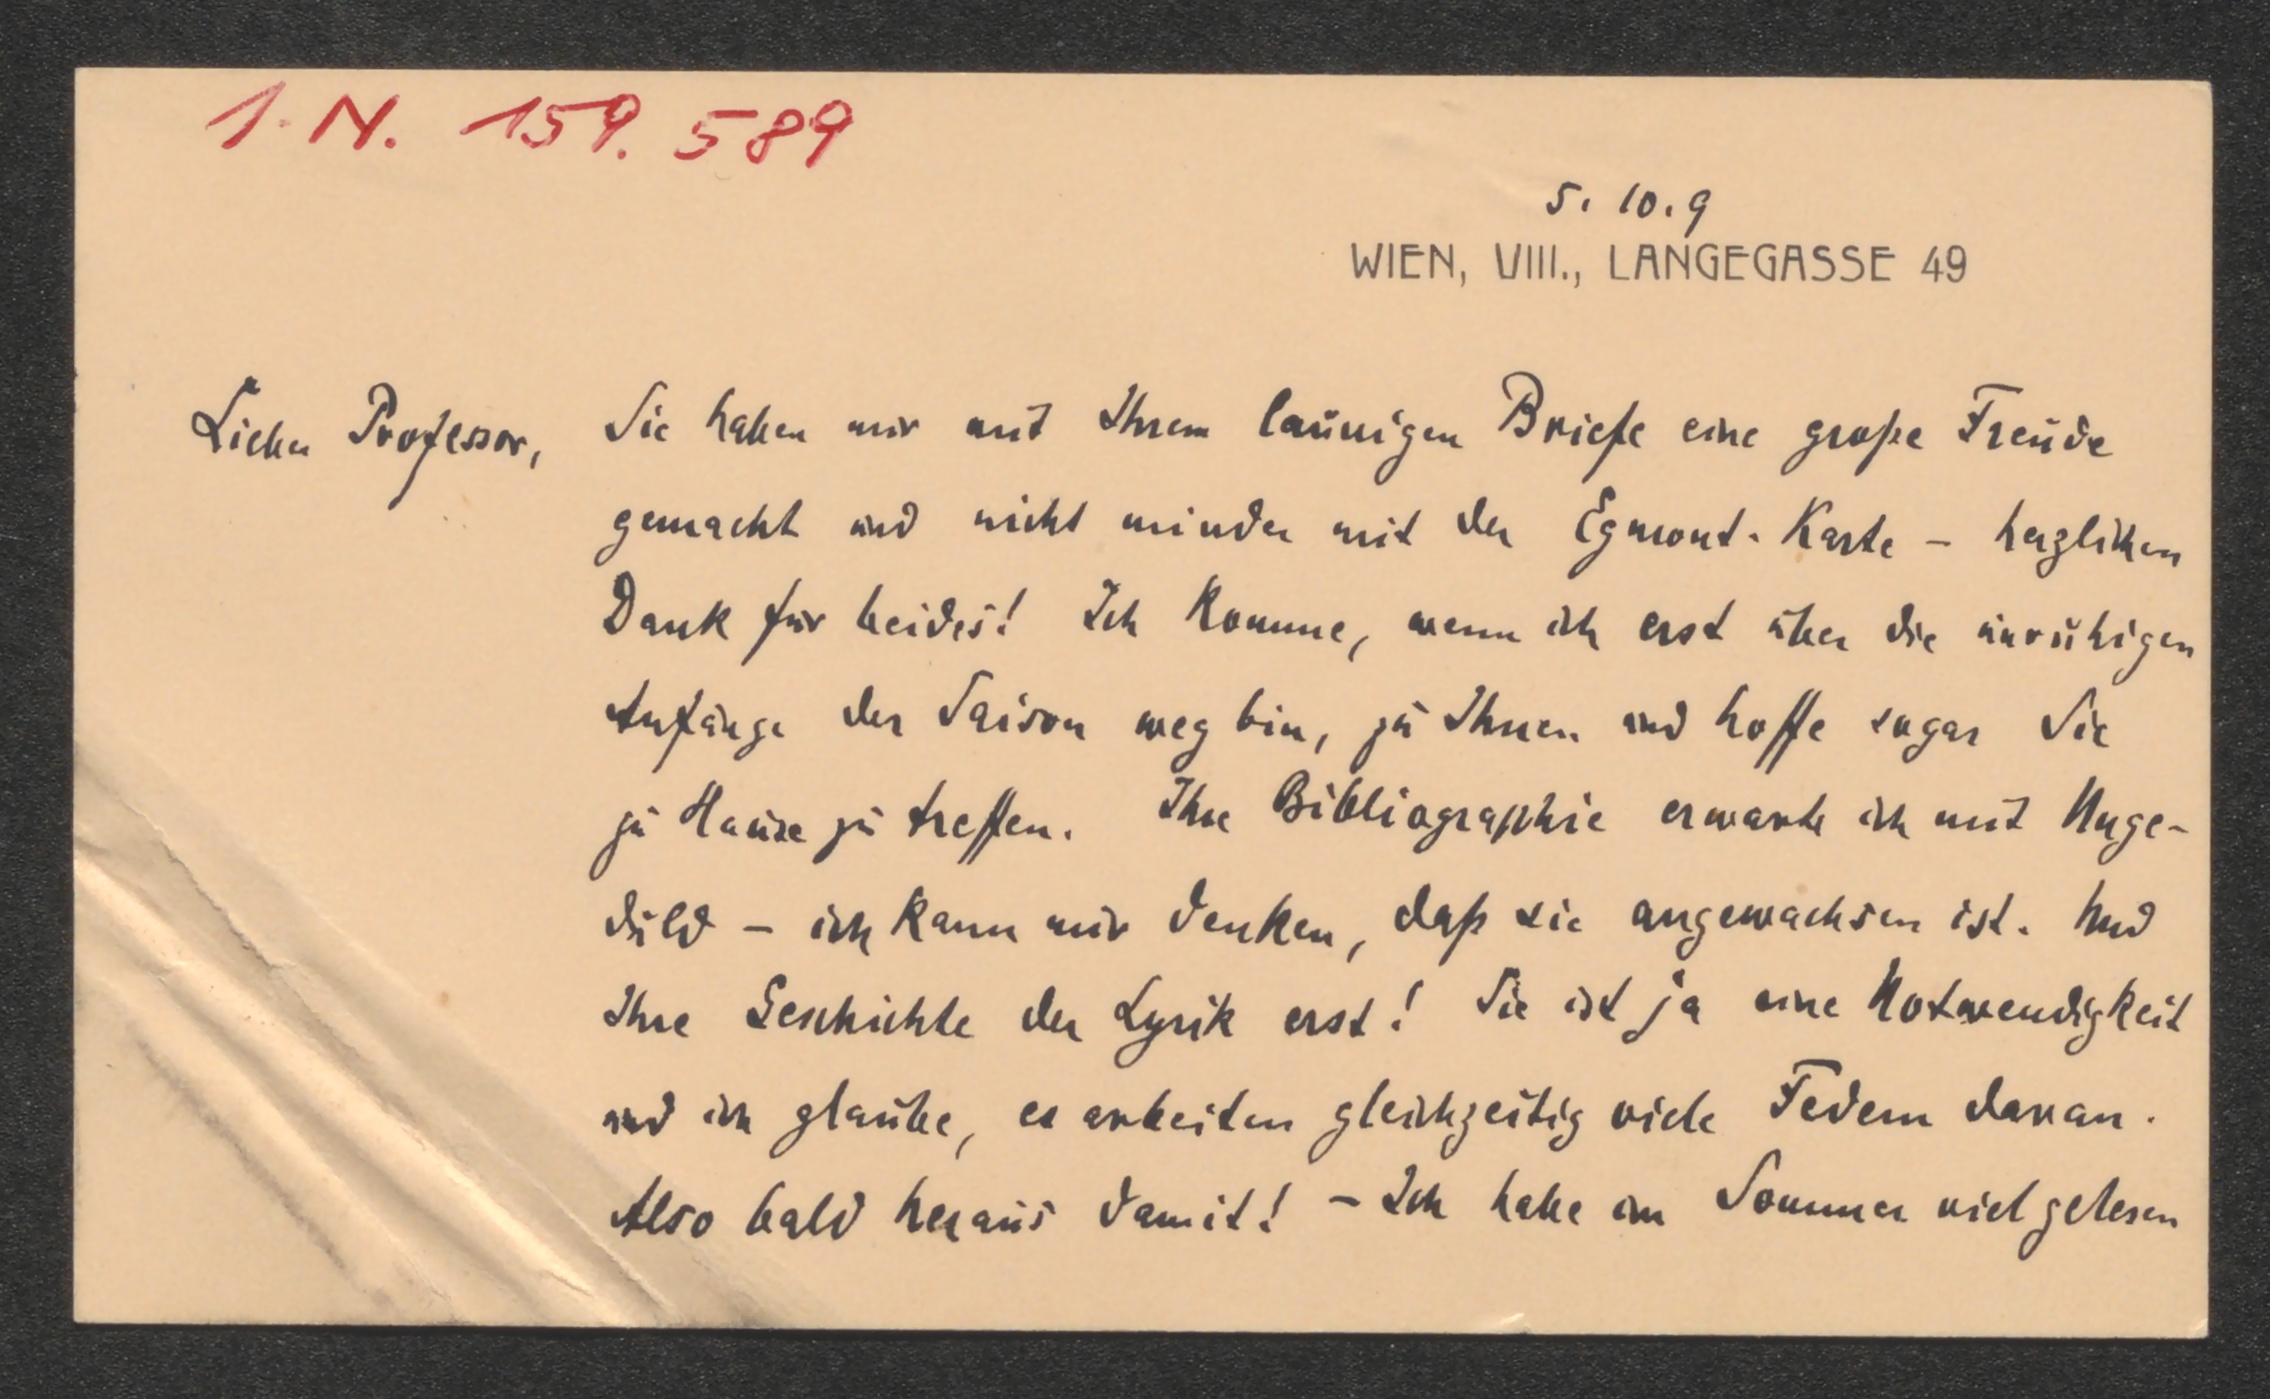 I. N. 159. 589
5. 10. 9
WIEN, VIII., LANGEGASSE 49
Lieber Professor, Sie haben mir mit Ihrem launigen Briefe eine große Freude
gemacht und nicht minder mit der Egmont-Karte – herzlichen
Dank für beides! Ich komme, wenn ich erst über die unruhigen
Anfänge der Saison weg bin, zu Ihnen und hoffe sogar Sie
zu Hause zu treffen. Ihre Bibliographie erwarte ich mit Unge-
duld – ich kann mir denken, daß sie angewachsen ist. Und
Ihre Geschichte der Lyrik erst! Sie ist ja eine Notwendigkeit
und ich glaube, es arbeiten gleichzeitig viele Federn daran.
Also bald heraus damit! – Ich habe im Sommer viel gelesen